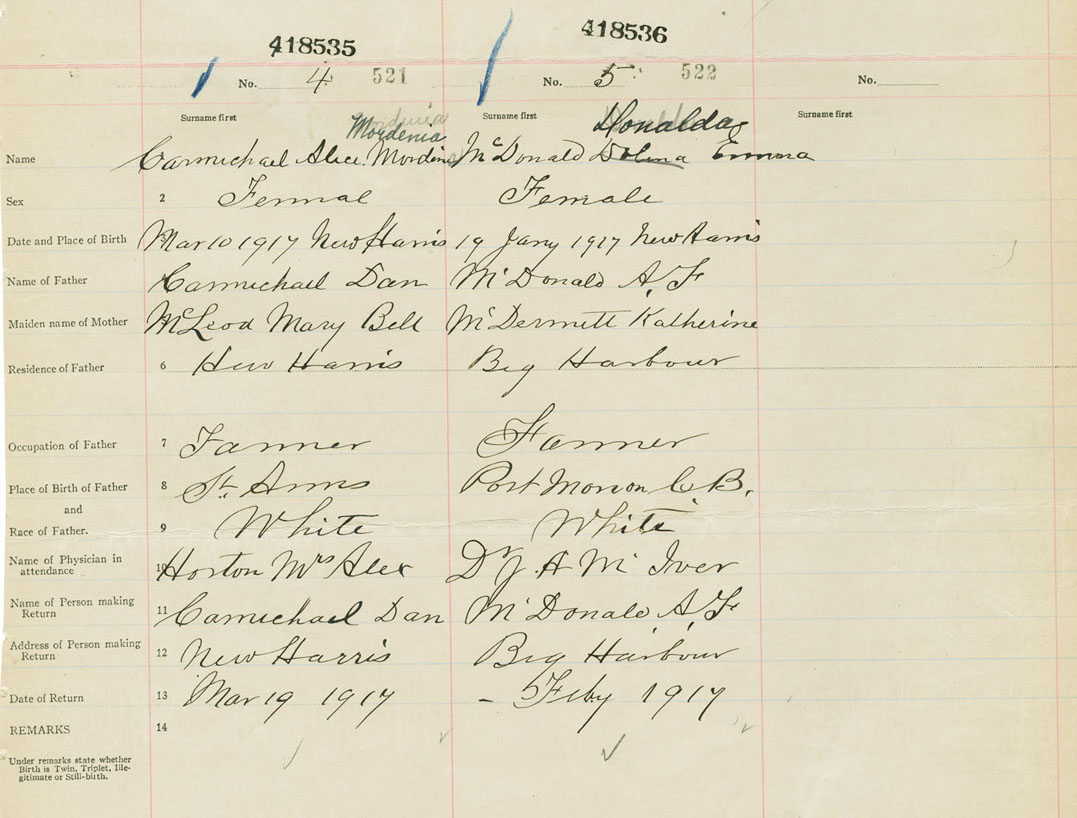 418535 418536
No. 4 521 No. 5 522 No.
Surname first Surname first Surname first
Mordenia Donalda
Name Carmichael Alice Mordina McDonald Dolina Emma
Sex 2 Femal Female
Date and Place of Birth Mar 10 1917 New Harris 19 Jany 1917 New Harris
Name of Father Carmichael Dan McDonald A, F
Maiden name of Mother McLeod Mary Bell McDermett Katherine
Residence of Father 6 New Harris Big Harbour
Occupation of Father 7 Farmer Farmer
Place of Birth of Father 8 St. Anns Port Morion C. B.
and
Race of Father. 9 White White
Name of Physician in attendance 10 Horton Mrs Alex Dr J. A McIver
Name of Person making Return 11 Carmichael Dan McDonald A, F
Address of Person making Return 12 New Harris Big Harbour
Date of Return 13 Mar 19 1917 – Feby 1917
REMARKS 14
Under remarks state whether
Birth is Twin, Triplet, Ille-
gitimate or Still-birth.